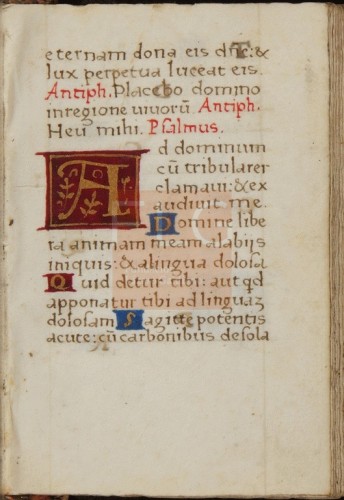 eternam dona eis dñe: &
lux perpetua luceat eis.
Antiph. Placebo domino
in regione uiuorũ Antiph.
Heu mihi. Psalmus.
Ad dominum
cũ tribularer
clamaui: & ex
audiuit me.
Domine libe
ra animam meam alabijs
iniquis: & alingua dolosa
Quid detur tibi: aut qd
apponatur tibi ad linguaz
dolosam Sagitte potentis
acute: cũ carbonibus desola